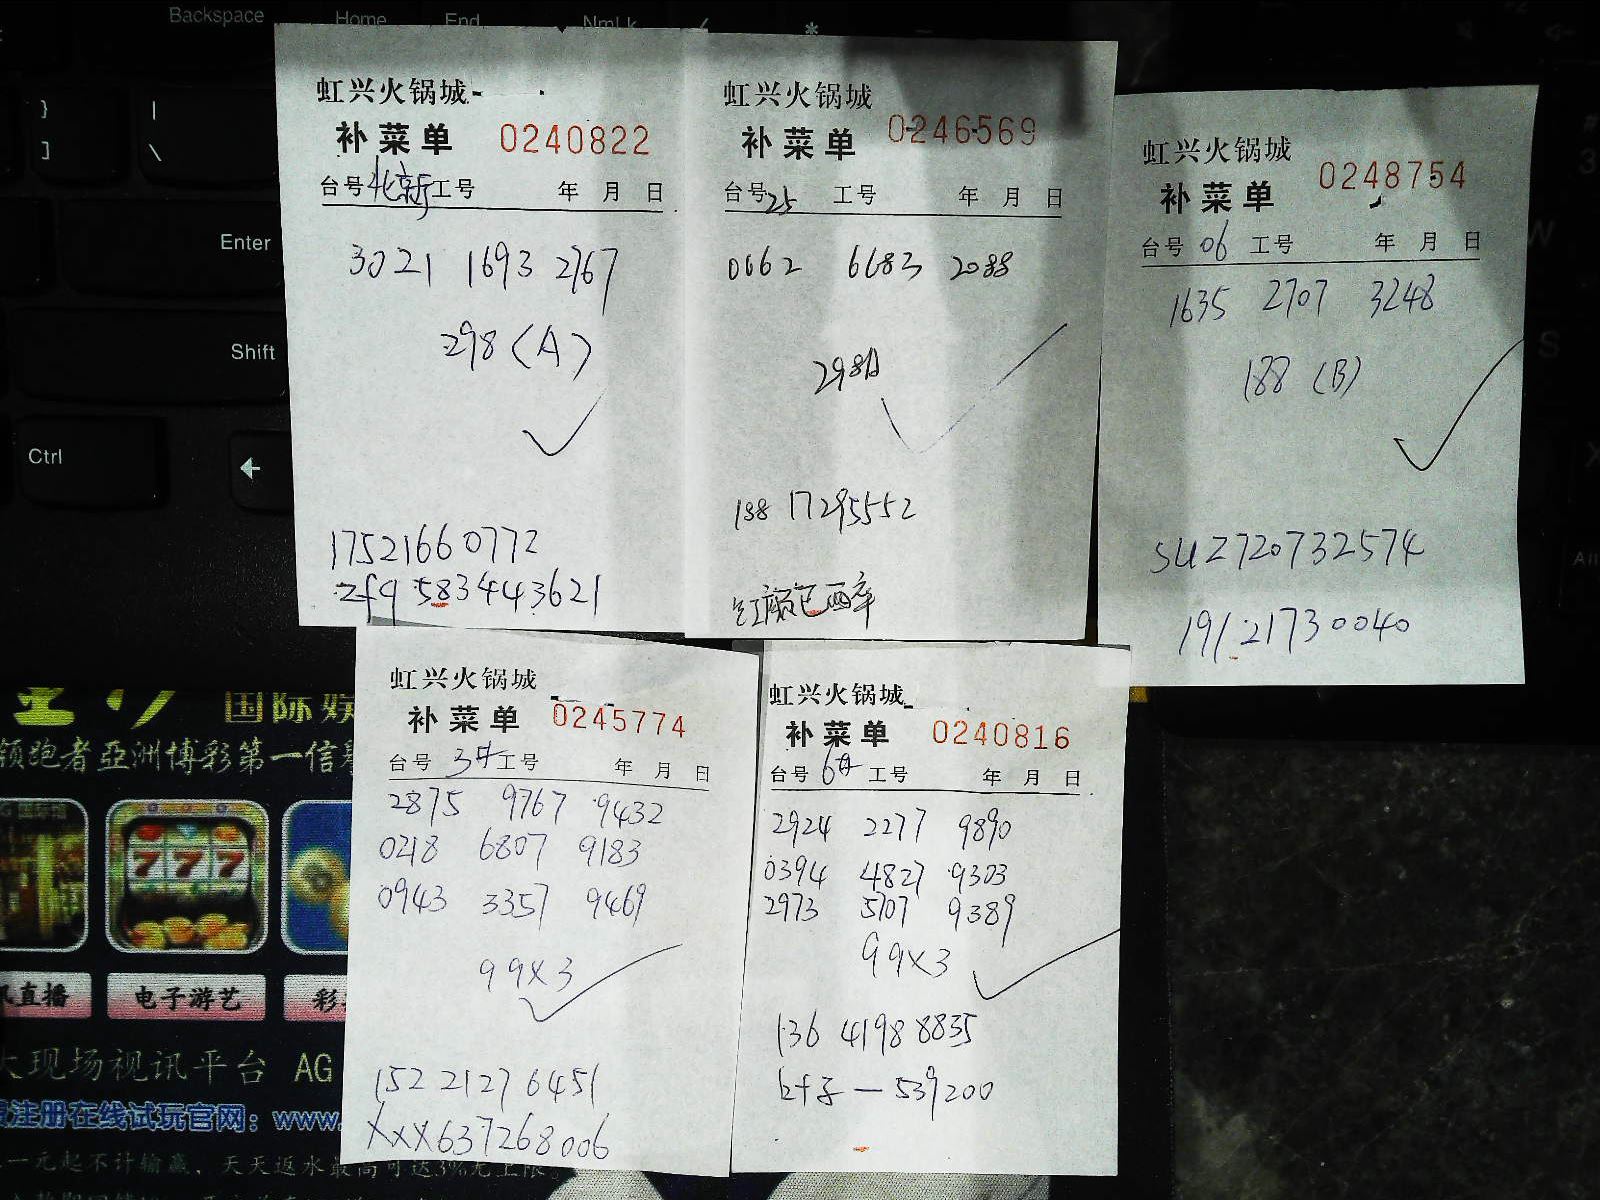 Backspace
Home
End
NmLk
}
]
|
\
Enter
Shift
Ctrl
虹兴火锅城
补菜单 0240822
台号 北新 工号 年 月 日
3021 1693 2767
298 (A)
17521660772
zfq583443621
虹兴火锅城
补菜单 0246569
台号 25 工号 年 月 日
0662 6683 2088
298A
188 17295552
红颜已西辛
虹兴火锅城
补菜单 0248754
台号 06 工号 年 月 日
1635 2707 3248
188 (B)
SUZ720732574
19121730040
虹兴火锅城
补菜单 0245774
台号 3中 工号 年 月 日
2875 9767 9432
0218 6807 9183
0943 3357 9469
99x3
152 2127 6451
XXX637268006
虹兴火锅城
补菜单 0240816
台号 6中 工号 年 月 日
2924 2277 9890
0394 4827 9303
2973 5707 9389
99x3
136 4198 8835
叶子—539200
国际娱
领跑者亞洲博彩第一信
777
直播
电子游艺
彩
大现场视讯平台 AG
注册在线试玩官网：www.
一元起不计输赢，天天返水最高可达3%无上限